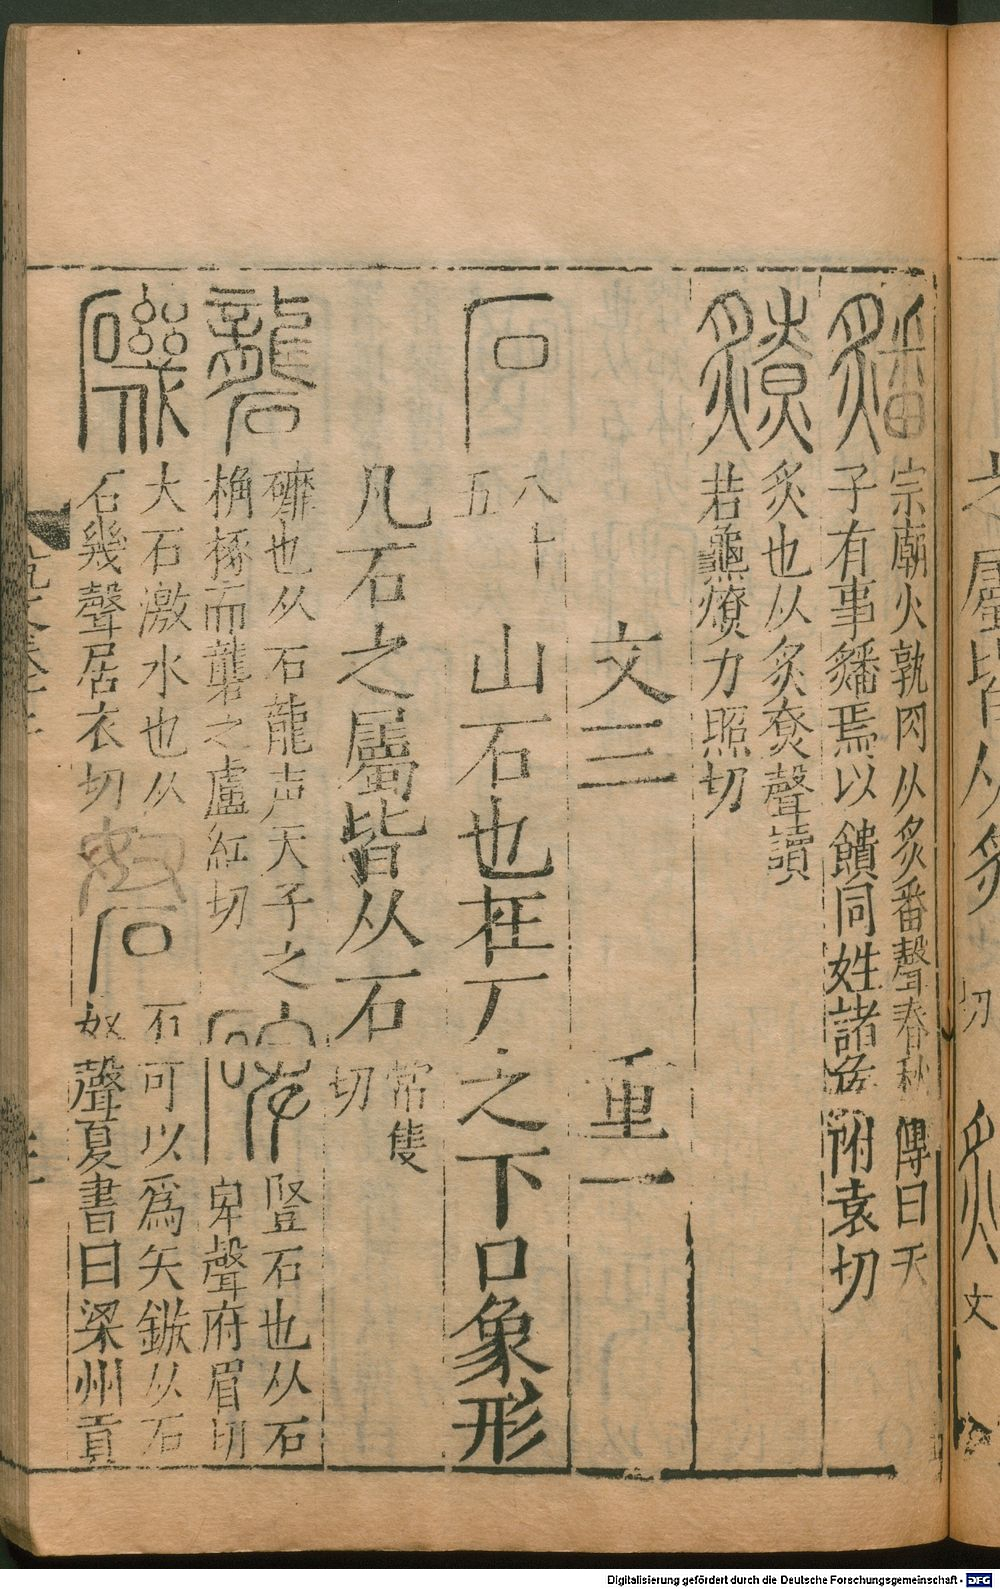 宗廟火孰肉从炙番聲春秋傳曰天
子有事䊩焉以饋同姓諸矦附袁切
炙也从炙尞聲讀
若龜燎力照切
文三 重一
八十
五
山石也在厂之下口象形
凡石之屬皆从石
常隻
切
礲
䃺也从石龍声天子之
桷椓而礱之盧紅切
碎
豎石也从石
卑聲府眉切
大石激水也从
石幾聲居衣切
砮
石可以爲矢鏃从石
奴聲夏書曰梁州貢
之屬皆从炙
切
文
Digitalisierung gefördert durch die Deutsche Forschungsgemeinschaft - DFG